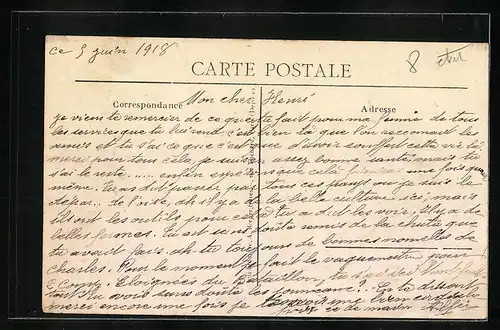 ce 5 juin 1918
8
CARTE POSTALE
Correspondance Mon cher Henri
Adresse
je viens te remercier de ce que tu fait pour ma femme de tous
les services que tu lui rend c'est bien là que l'on reconnait les
amis et tu sai ce que c'est que d'avoir souffert cette vie là
merci pour tous cela, je suis en assez bonne santé mais tu
sai le reste ..... enfin espérons que cela finira une fois quand
même. Tu as dit passer par tous ces pays ou je suis la
depar... de l'oise, ah il y a de la belle culture ici, mais
ils ont les outils pour cela tu a dit les voir, il y a de
belles fermes. Tu est sans doute remis de la chute que
tu avait fais. uh tu toujours de bonnes nouvelles de
Charles. Pour le moment je fait le vaguemestre pour
2 Comp. Eloignées du Bataillon, tu
tout tu vois sans doute les journeaux? En te disant
merci encore une fois je une bien cordiale
de main